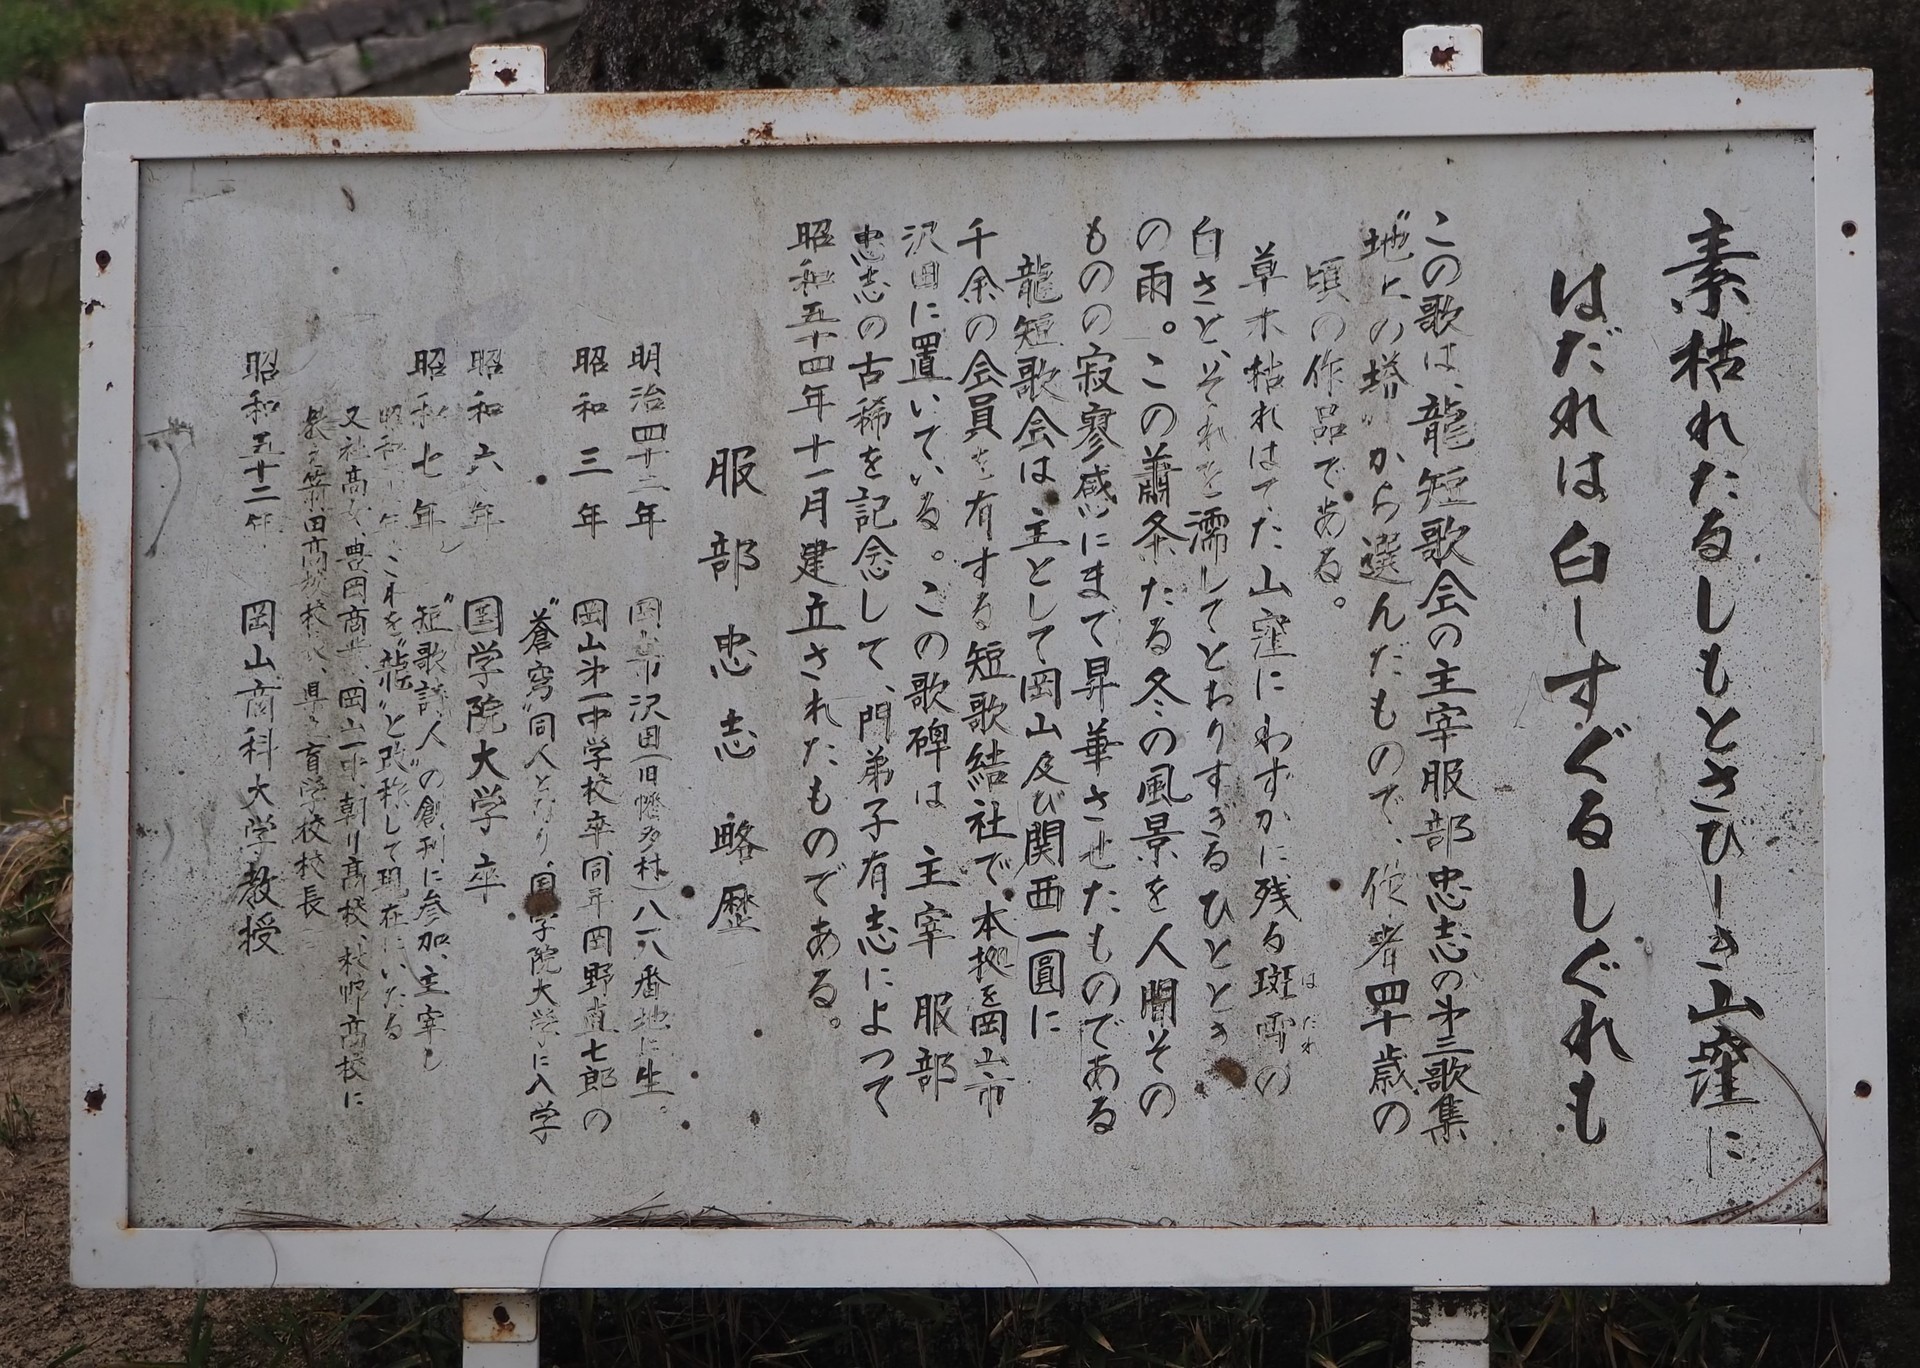 素枯れたるしもとさびしき山窪に
はだれは白しすぐるしぐれも
この歌は、龍短歌会の主宰服部忠志の第三歌集
"地上の塔"から選んだもので、作者四十歳の
頃の作品である。
草木枯れはてた山窪にわずかに残る斑雪の
はだれ
白さと、それを濡してとおりすぎるひととき
の雨。この蕭条たる冬の風景を人間その
ものの寂寥感にまで昇華させたものである
龍短歌会は主として岡山及び関西一圓に
千余の会員を有する短歌結社で、本拠を岡山市
沢田に置いている。この歌碑は 主宰 服部
忠志の古稀を記念して、門弟子有志によって
昭和五十四年十一月建立されたものである。
服部忠志 略歴
明治四十二年 岡山市沢田(旧幡多村)八一八番地に生。
昭和三年 岡山第一中学校卒、同年岡野直七郎の
"蒼穹"同人となり、国学院大学に入学
昭和六年 国学院大学卒
昭和七年 "短歌詩人"の創刊に参加、主宰し
昭和 年これを"龍"と改称して現在にいたる
又社高女、豊岡商業、岡山一中、朝日高校、 高校に
教 笠岡高 校長、県 盲学校校長
昭和五十二年 岡山商科大学教授